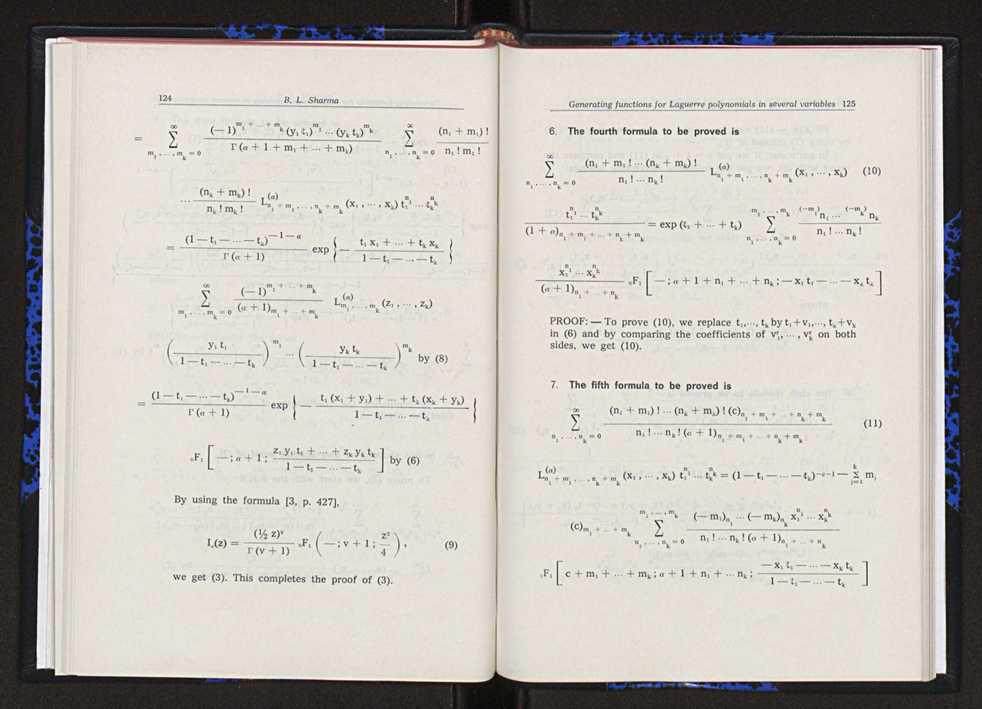 124 B. L. Sharma
= ∞ ∑ m₁, ..., m_k = 0 (— 1)^{m₁ + ... + m_k} (y₁ t₁)^{m₁} ... (y_k t_k)^{m_k} / Γ (α + 1 + m₁ + ... + m_k) ∞ ∑ n₁, ..., n_k = 0 (n₁ + m₁) ! / n₁ ! m₁ !
... (n_k + m_k) ! / n_k ! m_k ! L^{(α)}_{n₁ + m₁, ..., n_k + m_k} (x₁, ..., x_k) t₁^{n₁} ... t_k^{n_k}
= (1 — t₁ — ... — t_k)^{— 1 — α} / Γ (α + 1) exp { — t₁ x₁ + ... + t_k x_k / 1 — t₁ — ... — t_k }
∞ ∑ m₁, ..., m_k = 0 (— 1)^{m₁ + ... + m_k} / (α + 1)_{m₁ + ... + m_k} L^{(α)}_{m₁, ..., m_k} (z₁, ..., z_k)
( y₁ t₁ / 1 — t₁ — ... — t_k )^{m₁} ... ( y_k t_k / 1 — t₁ — ... — t_k )^{m_k} by (8)
= (1 — t₁ — ... — t_k)^{— 1 — α} / Γ (α + 1) exp { — t₁ (x₁ + y₁) + ... + t_k (x_k + y_k) / 1 — t₁ — ... — t_k }
₀F₁ [ — ; α + 1 ; z₁ y₁ t₁ + ... + z_k y_k t_k / 1 — t₁ — ... — t_k ] by (6)
By using the formula [3, p. 427],
I_v(z) = (½ z)^v / Γ (v + 1) ₀F₁ ( — ; v + 1 ; z² / 4 ) , (9)
we get (3). This completes the proof of (3).
Generating functions for Laguerre polynomials in several variables 125
6. The fourth formula to be proved is
∞ ∑ n₁, ..., n_k = 0 (n₁ + m₁ ! ... (n_k + m_k) ! / n₁ ! ... n_k ! L^{(α)}_{n₁ + m₁, ..., n_k + m_k} (x₁, ..., x_k) (10)
t₁^{n₁} ... t_k^{n_k} / (1 + α)_{n₁ + m₁ + ... + n_k + m_k} = exp (t₁ + ... + t_k) m₁, ..., m_k ∑ n₁, ..., n_k = 0 (—m₁)_{n₁} ... (—m_k)_{n_k} / n₁ ! ... n_k !
x₁^{n₁} ... x_k^{n_k} / (α + 1)_{n₁ + ... + n_k} ₀F₁ [ — ; α + 1 + n₁ + ... + n_k ; — x₁ t₁ — ... — x_k t_k ]
PROOF: — To prove (10), we replace t₁,..., t_k by t₁ + v₁,..., t_k + v_k
in (6) and by comparing the coefficients of v₁^r, ..., v_k^r on both
sides, we get (10).
7. The fifth formula to be proved is
∞ ∑ n₁, ..., n_k = 0 (n₁ + m₁) ! ... (n_k + m_k) ! (c)_{n₁ + m₁ + ... + n_k + m_k} / n₁ ! ... n_k ! (α + 1)_{n₁ + m₁ + ... + n_k + m_k} (11)
L^{(α)}_{n₁ + m₁, ..., n_k + m_k} (x₁, ..., x_k) t₁^{n₁} ... t_k^{n_k} = (1 — t₁ — ... — t_k)^{—c—1} — k Σ j=1 m_j
(c)_{m₁ + ... + m_k} m₁, ..., m_k ∑ n₁, ..., n_k = 0 (— m₁)_{n₁} ... (— m_k)_{n_k} x₁^{n₁} ... x_k^{n_k} / n₁ ! ... n_k ! (α + 1)_{n₁ + ... + n_k}
₁F₁ [ c + m₁ + ... + m_k ; α + 1 + n₁ + ... n_k ; — x₁ t₁ — ... — x_k t_k / 1 — t₁ — ... — t_k ]